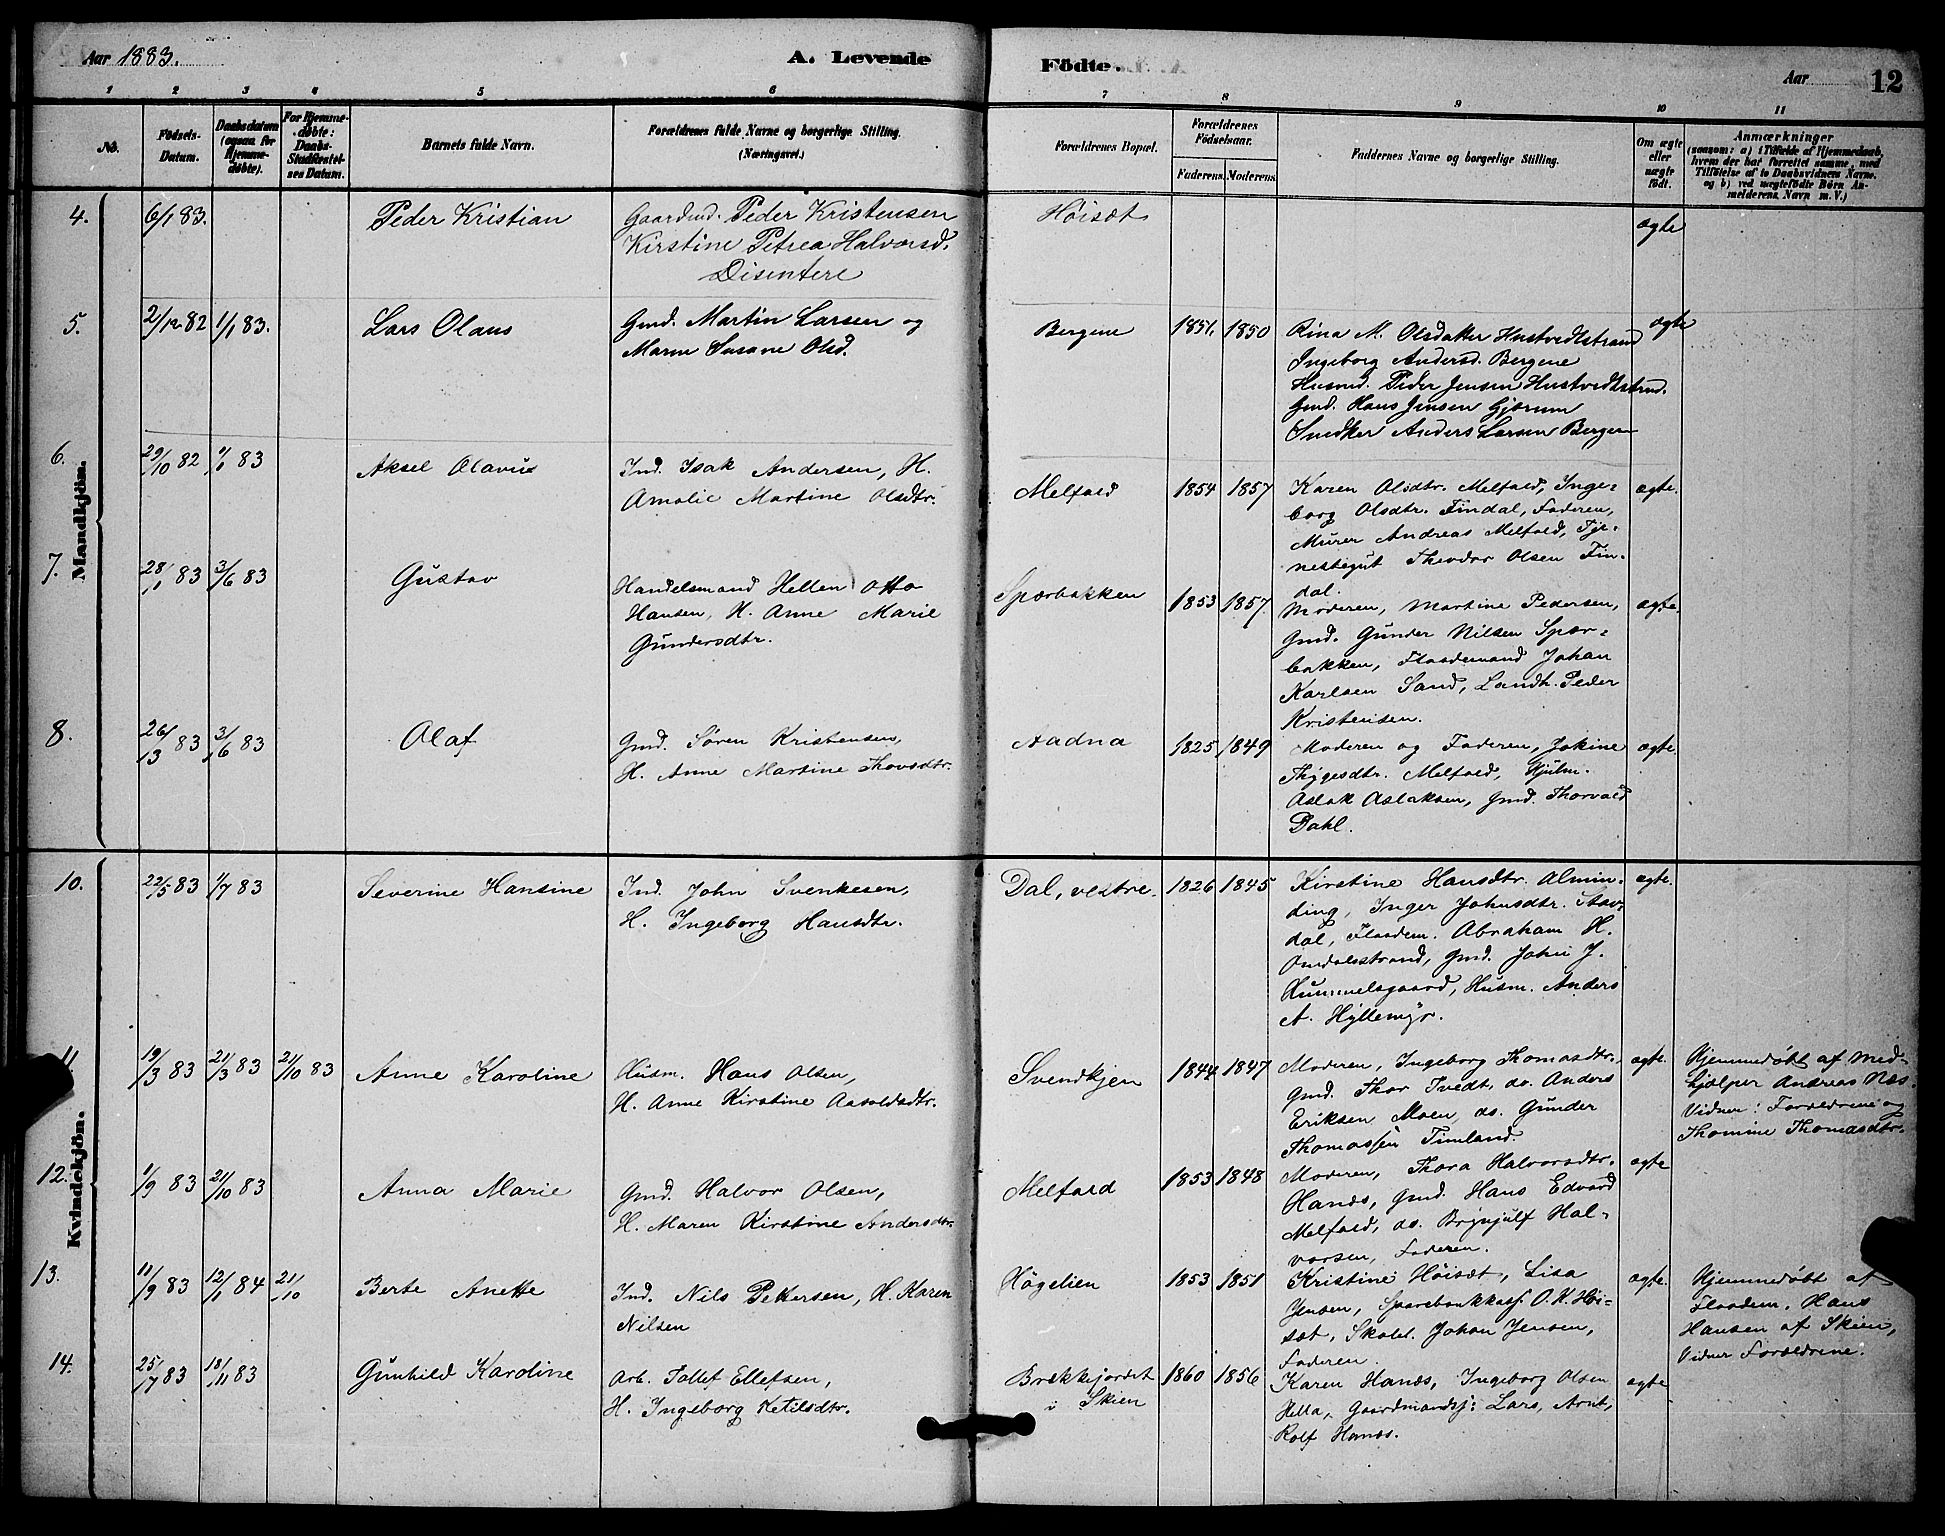 Aar 1883.
A. Levende
Födte.
Aar
12
1 2 3 4 5 6 7 8 9 10 11
No.
Födsels-
Datum.
Daabsdatum
(ogsaa for
Hjemme-
døbte).
For Hjemme-
døbte:
Daabs-
Stadfæstel-
ses Datum.
Barnets fulde Navn.
Forældrenes fulde Navne og borgerlige Stilling.
(Næringsvei.)
Forældrenes Bopæl.
Forældrenes
Födselsaar.
Faderens. Moderens.
Faddernes Navne og borgerlige Stilling.
Om ægte
eller
uægte
født.
Anmærkninger
(saasom: a) i Tilfælde af Hjemmedaab,
hvem der har forrettet samme, med
Tilföielse af to Daabsvidners Navne.
og b) ved uægtefödte Börn An-
melderens Navn m. V.)
Mandkjön.
4. 6/1 83. Peder Kristian
Gaardmd. Peder Kristensen
Kirstine Petrea Halvorsd.
Disentere
Höisæt
ægte
5. 2/12 82 1/1 83. Lars Olaus
Gmd. Martin Larsen og
Maren Susane Olsd.
Bergene 1851. 1850
Rina M. Olsdatter Hustvedtstrand
Ingeborg Andersd. Bergene
Husmd. Peder Jensen Hustvedtstrnd.
Gmd. Hans Jensen Gjærum
Snedker Anders Larsen Bergen
ægte
6. 29/10 82 1/1 83 Aksel Olavus
Ind. Isak Andersen, H.
Amalie Martine Olsdtr.
Melfald 1854 1857
Karen Olsdtr. Melfald, Inge-
borg Olsdtr. Findal, Faderen,
Murer Andreas Melfald, Tje-
nestegut Theodor Olsen Fin-
dal.
ægte.
7. 28/1 83 3/6 83 Gustav
Handelsmand Hellen Otto
Hansen, H. Anne Marie
Gundersdtr.
Sporbakken 1853 1857.
Moderen, Martine Pedersen,
Gmd. Gunder Nilsen Spor-
bakken, Flaademand Johan
Karlsen Sand, Landh. Peder
Kristensen.
ægte.
8. 26/3 83 3/6 83 Olaf
Gmd. Søren Kristensen,
H. Anne Martine Thovsdtr.
Aadna 1825 1849
Moderen og Faderen, Jokine
Thygesdtr. Melfald, Hjulm.
Aslak Aslaksen, Gmd. Thorvald
Dahl.
ægte.
Kvindekjön.
10. 22/5 83 1/7 83 Severine Hansine
Ind. John Svenkesen,
H. Ingeborg Hansdtr.
Dal, vestre 1826 1845
Kirstine Hansdtr. Almin-
ding, Inger Johnsdtr. Stav-
dal, Flaadem. Abraham H.
Omdalsstrand, Gmd. John J.
Hummelsgaard, Husm. Anders
A. Hyllemyr.
ægte.
11. 19/3 83 21/3 83 21/10 83 Anne Karoline
Husm. Hans Olsen,
H. Anne Kirstine Aasoldsdtr.
Svendkjen 1844 1847
Moderen, Ingeborg Thomasdtr.
Gmd. Thor Tvedt, do. Anders
Eriksen Moen, do. Gunder
Thomassen Timland.
ægte.
Hjemmedøbt af Med-
hjælper Andreas Næs.
Vidner: Forældrene og
Thomine Thomasdtr.
12. 1/9 83 21/10 83 Anna Marie
Gmd. Halvor Olsen,
H. Maren Kirstine Andersdtr.
Melfald 1853 1848
Moderen, Thora Halvorsdtr.
Hanæs, Gmd. Hans Edvard
Melfald, do. Brynjulf Hal-
vorsen, Faderen.
ægte
13. 11/9 83 12/1 84 21/10 Berte Anette
Ind. Nils Pettersen, H. Karen
Nilsen
Høgelien 1853 1851
Kristine Höisæt, Lisa
Jensen, Sparebankkass. O. K. Höi-
sæt, Skolel. Johan Jensen,
Faderen.
ægte.
Hjemmedøbt af
Flaadem. Hans
Hansen af Skien,
Vidner Forældrene.
14. 25/7 83 18/11 83 Gunhild Karoline
Arb. Tollef Ellefsen,
H. Ingeborg Ketilsdtr.
Brekkjordet
i Skien
1860 1856
Karen Hanæs, Ingeborg Olsen
Hella, Gaardmandss: Lars, Arnt,
Rolf Hanæs.
ægte